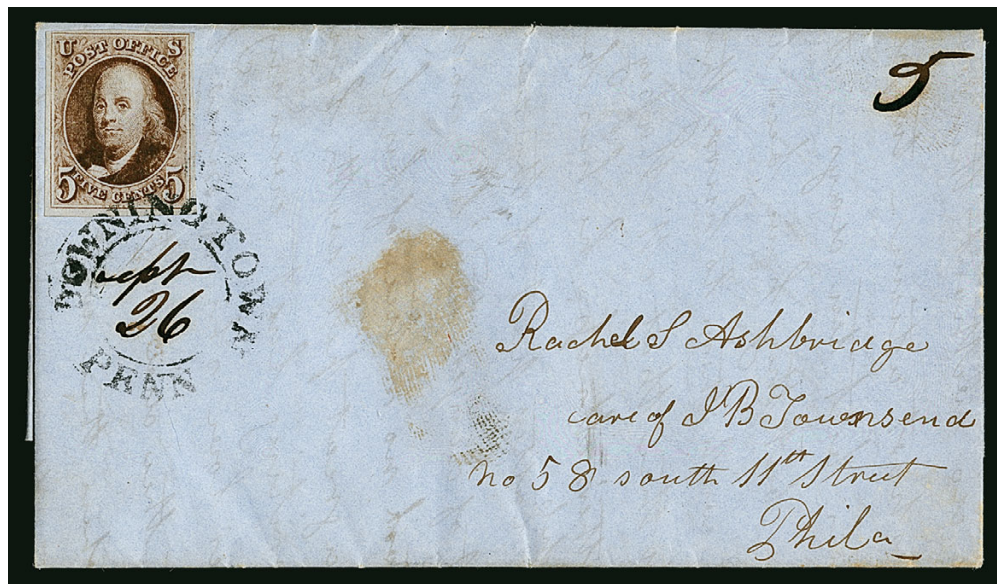 U S
POST OFFICE
5 FIVE CENTS 5
5
DOWNINGTOWN
Sept
26
PENN
Rachel S Ashbridge
care of J B Townsend
No 58 south 11th Street
Phila